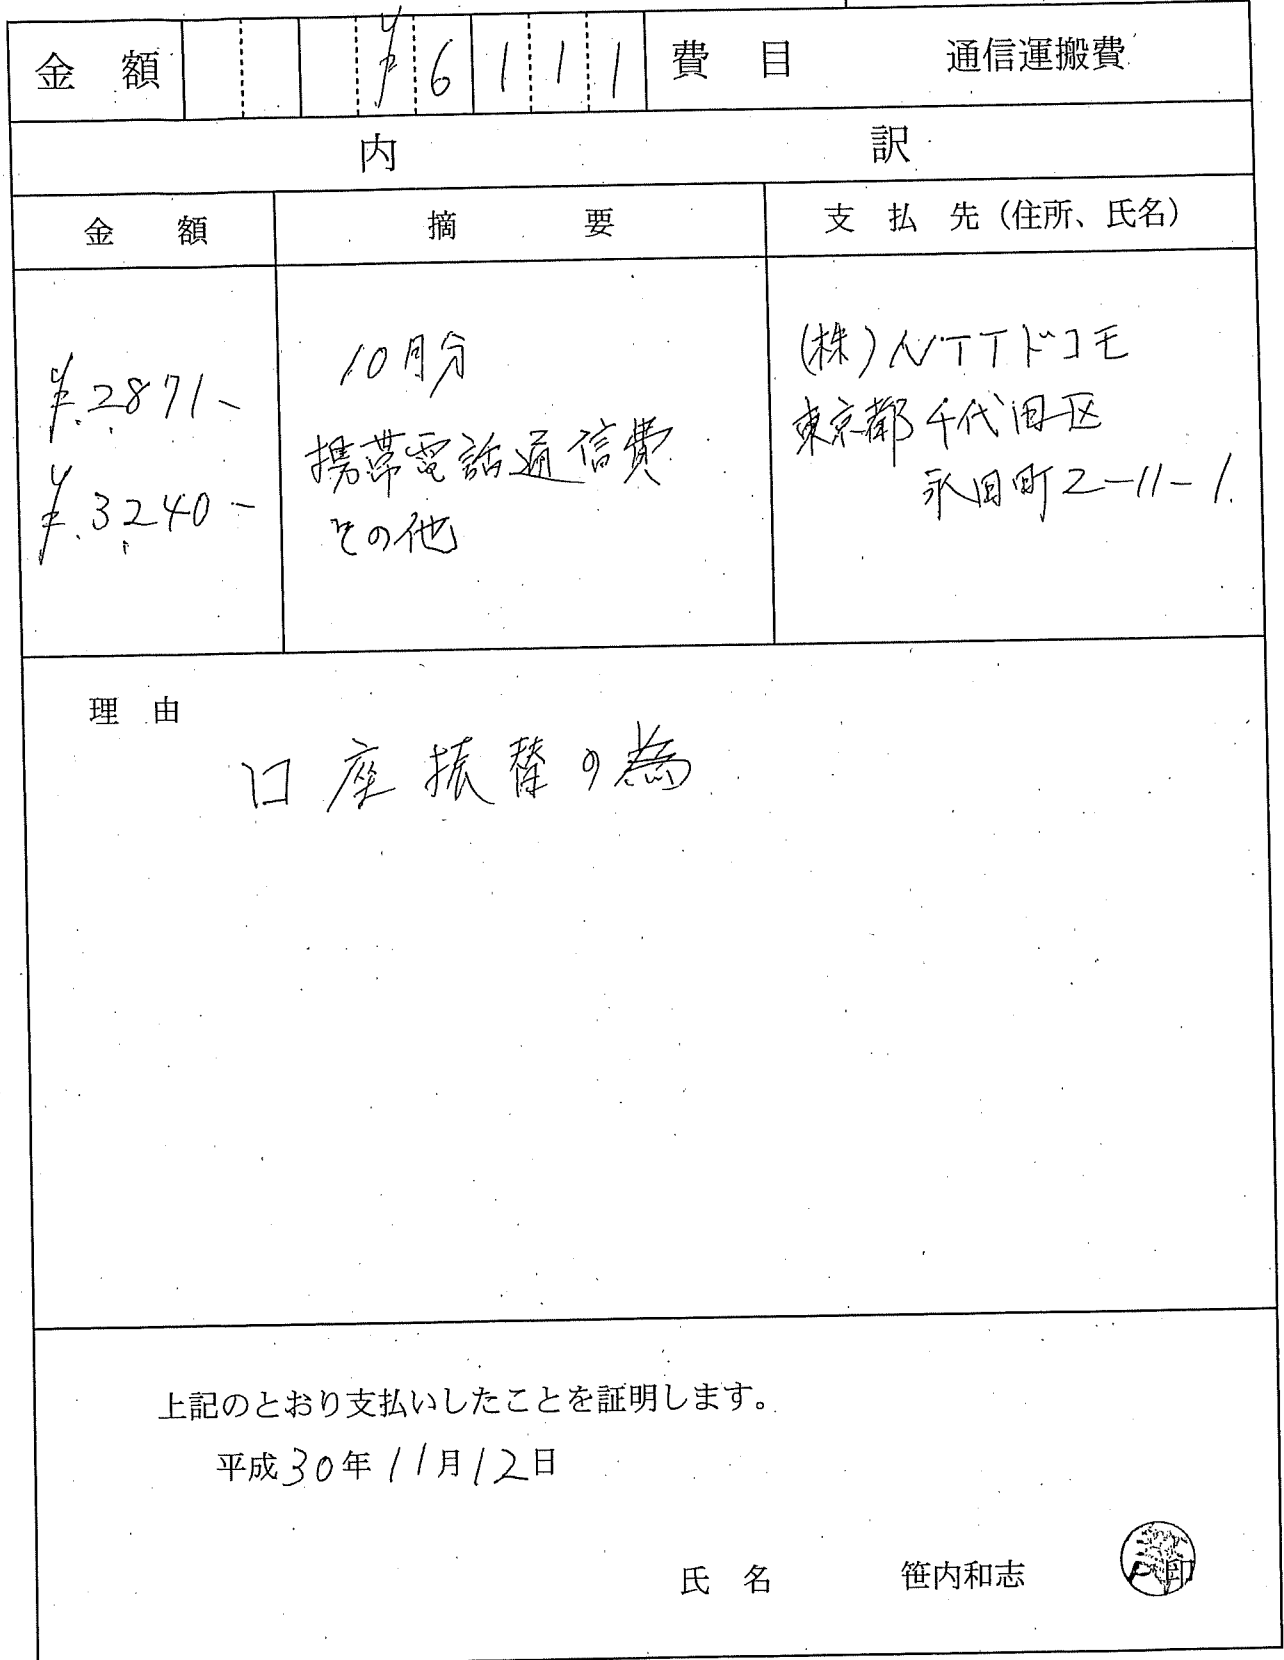 金額 ¥6111 費目 通信運搬費
内訳
金額 摘要 支払先（住所、氏名）
¥.2871-
¥.3240-
10月分
携帯電話通信費
その他
(株)NTTドコモ
東京都千代田区
永田町2-11-1.
理由
口座振替の為
上記のとおり支払いしたことを証明します。
平成30年11月12日
氏名 笹内和志 印